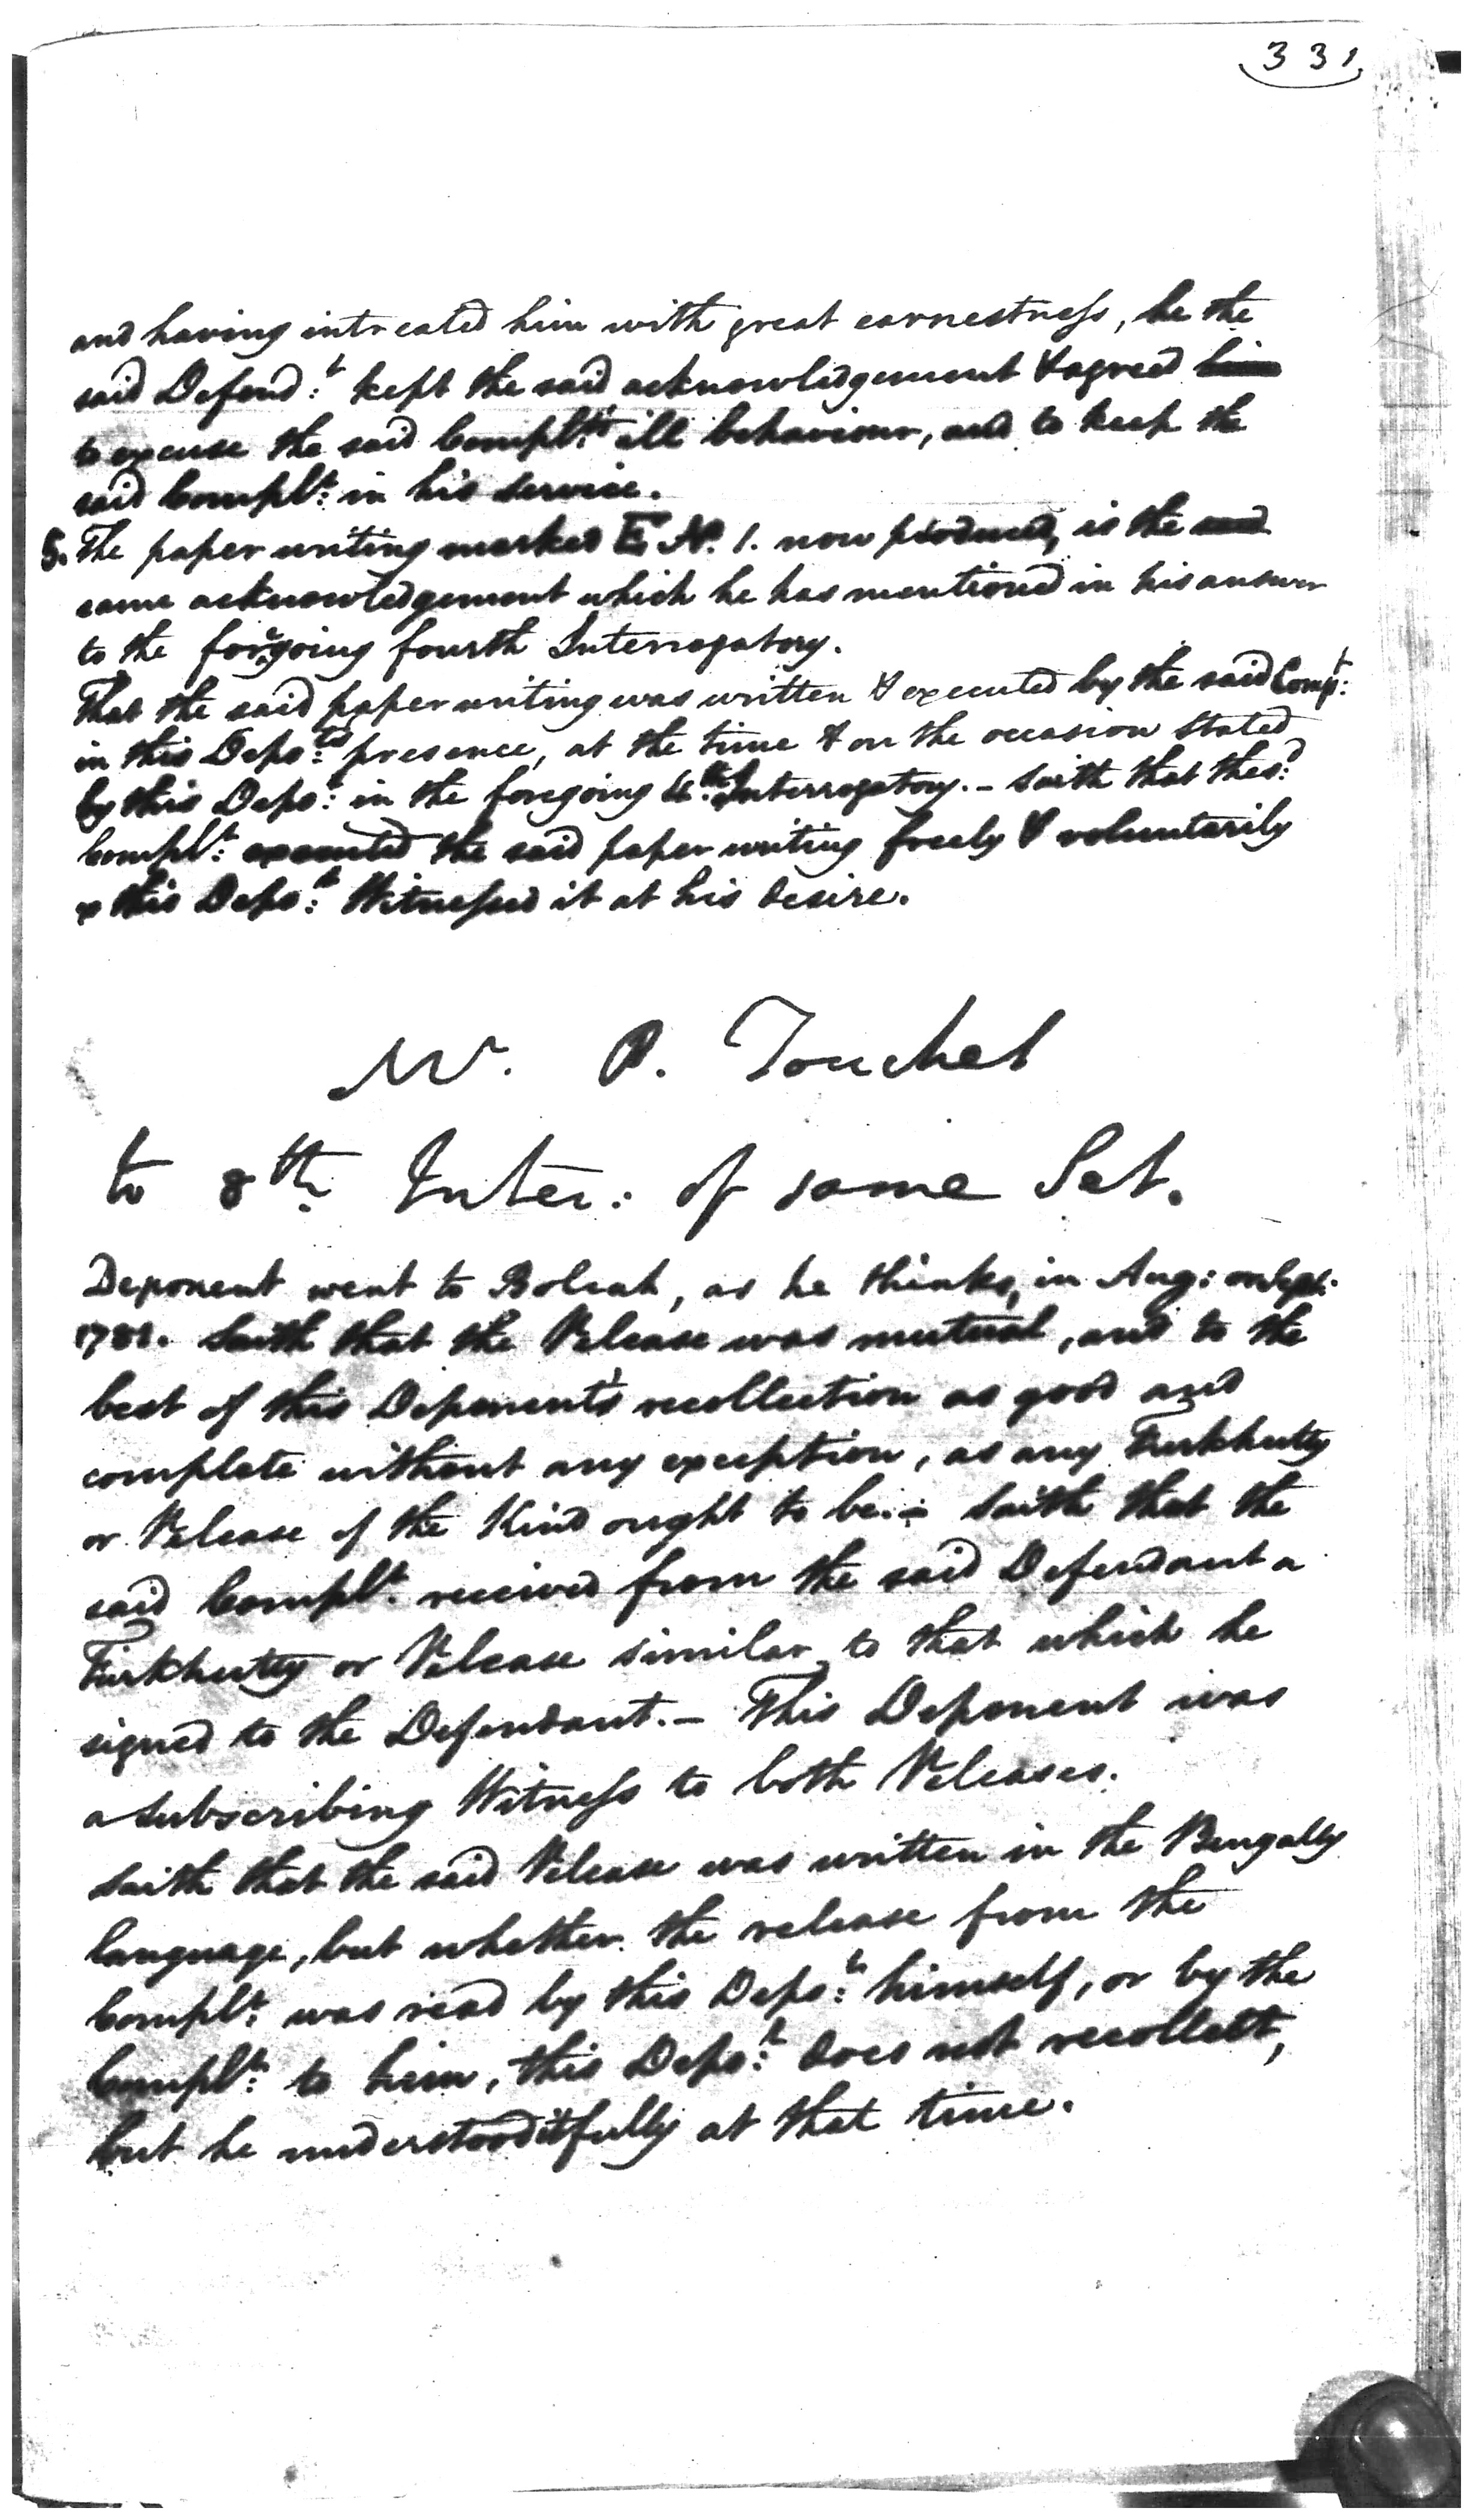 331
and having intreated him with great earnestness, he the
said Defend:t kept the said acknowledgement & agreed
to excuse the said Complt:s ill behaviour, and to keep the
said Complt: in his service.
5. The paper writing marked E No. 1. now produced, is the
same acknowledgement which he has mentioned in his answer
to the foregoing fourth Interrogatory.
That the said paper writing was written & executed by the said Comp:t
in this Depo:ts presence, at the time & on the occasion stated
by this Depo:t in the foregoing 4:th Interrogatory. - Saith that the s:d
Complt: executed the said paper writing freely & voluntarily
& this Depo:t Witnessed it at his desire.
W. P. Touchet
to 8th Inter: of same Set.
Deponent went to Boleah, as he thinks, in Aug: or Sept:
1781. Saith that the Release was mutual, and to the
best of this Deponent's recollection as good and
complete without any exception, as any Furkhutty
or Release of the Kind ought to be. - Saith that the
said Complt. received from the said Defendant a
Furkhutty or Release similar to that which he
signed to the Defendant. - This Deponent was
a subscribing Witness to both Releases.
Saith that the said Release was written in the Bengally
language, but whether the release from the
Complt: was read by this Depo:t himself, or by the
Complt: to him, this Depo:t does not recollect,
but he understood it fully at that time.